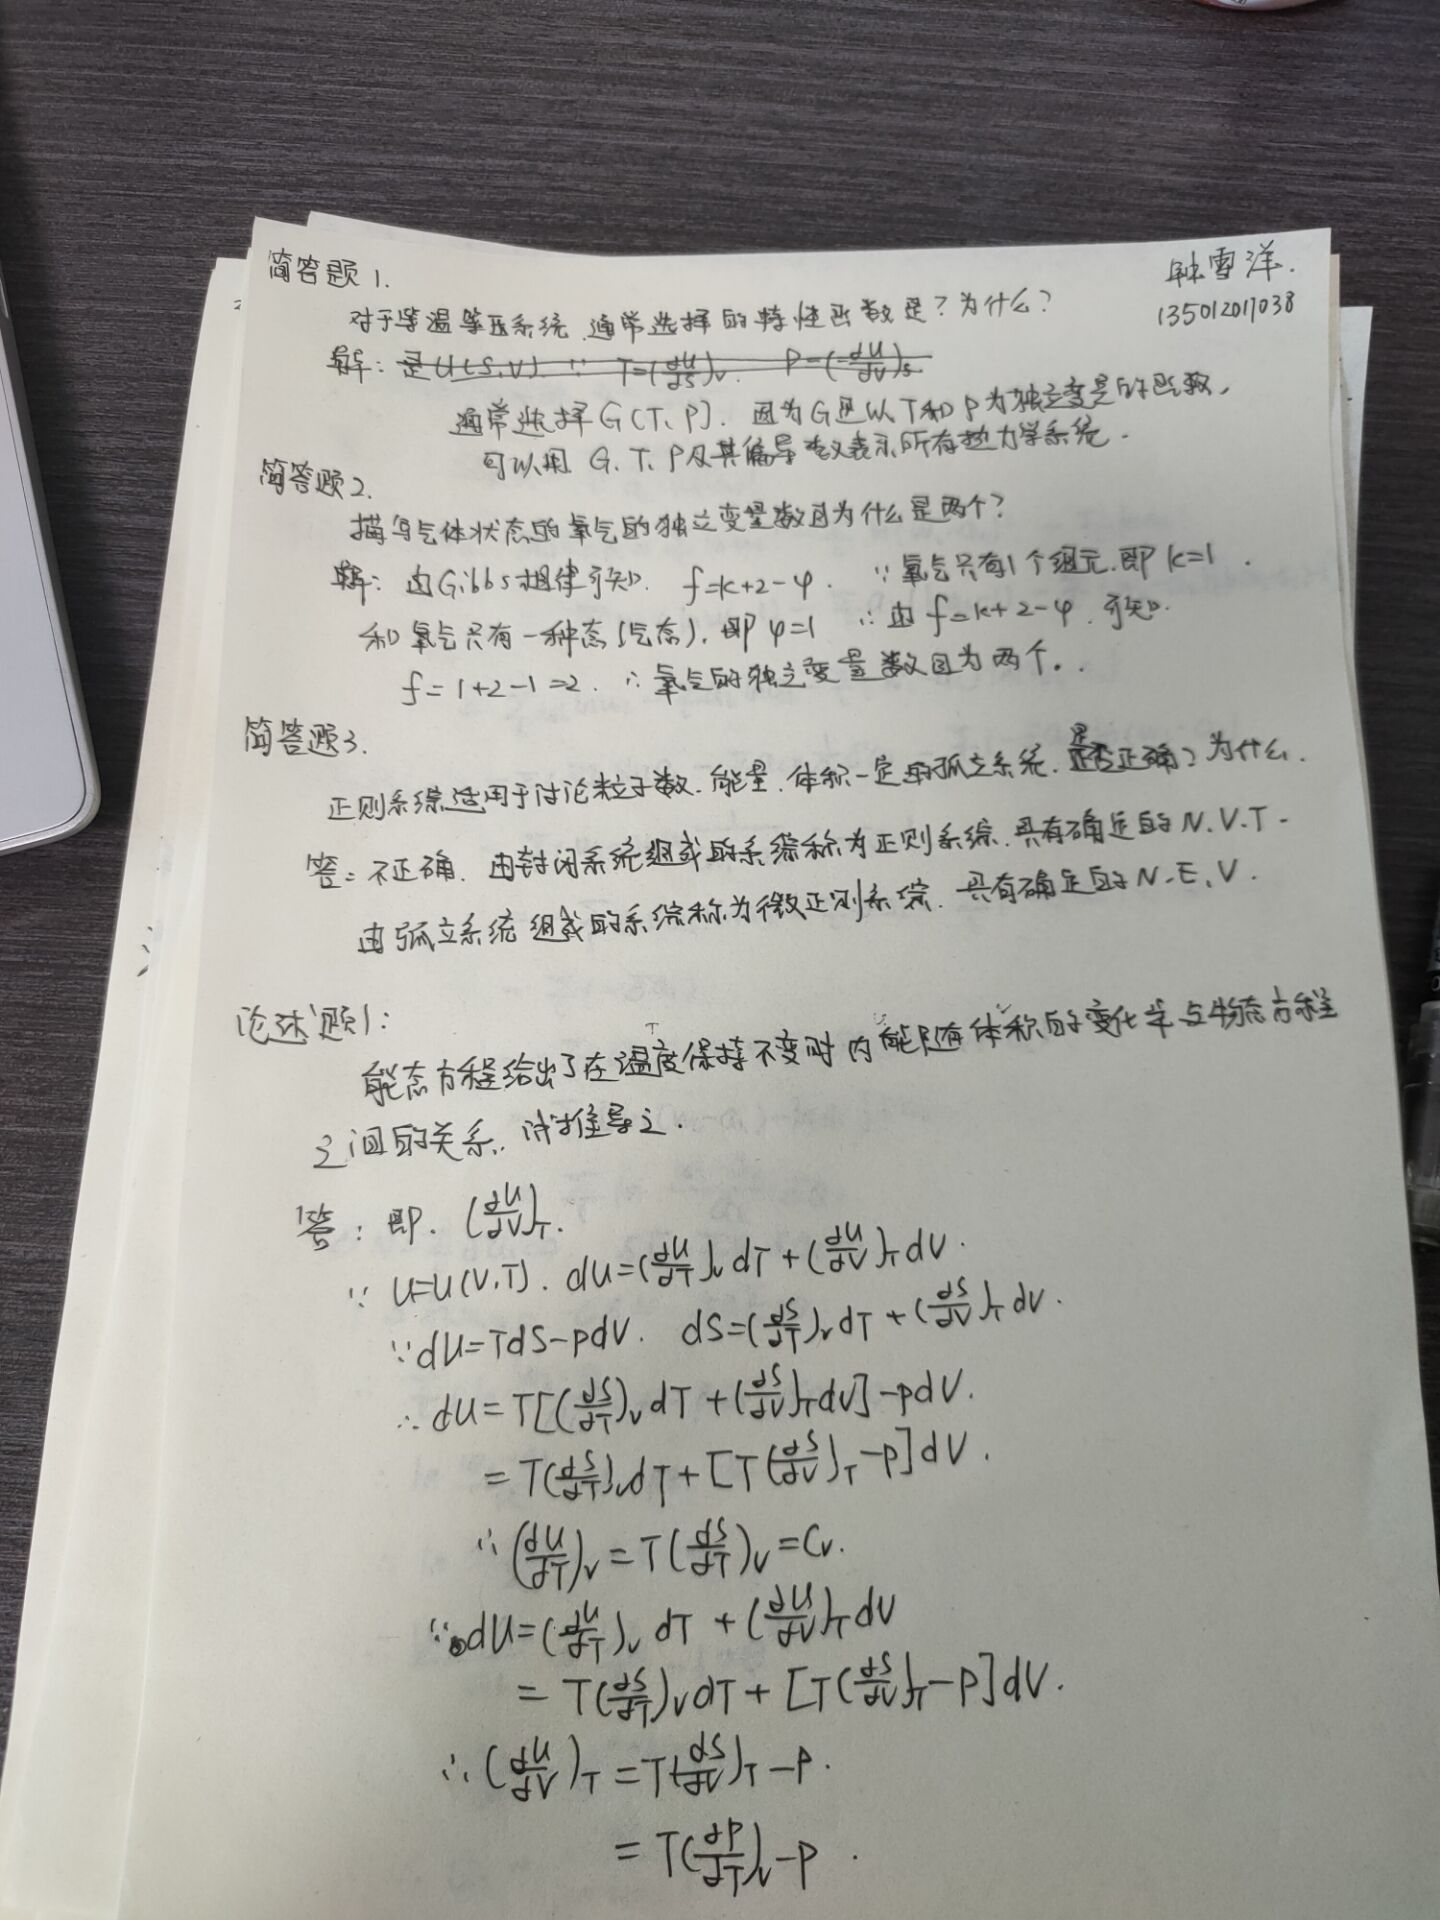 简答题1.
钟雪洋.
对于等温等压系统.通常选择的特性函数是?为什么?
135012017038
解: 是U(S,V). ∵ T=(∂U/∂S)_V. P=(-∂U/∂V)_S.
通常选择G(T、P]. 因为G是以T和P为独立变量的函数,
可以用 G.T.P及其偏导数表示所有热力学系统.
简答题2.
描写气体状态的氧气的独立变量数目为什么是两个?
解: 由Gibbs相律可知. f=k+2-φ. ∵氧气只有1个组元.即k=1.
和氧气只有一种态(气态).即φ=1 ∴由f=k+2-φ.可知.
f=1+2-1=2. ∴氧气的独立变量数目为两个.
简答题3.
正则系综适用于讨论粒子数.能量.体积一定的孤立系统.是否正确?为什么.
答: 不正确. 由封闭系统组成的系综称为正则系综.具有确定的N.V.T.
由孤立系统组成的系综称为微正则系综.具有确定的N.E.V.
论述题1:
能态方程给出了在温度保持不变时内能随体积的变化率与物态方程
之间的关系.试推导之.
答: 即. (∂U/∂V)_T.
∵ U=U(V,T). dU=(∂U/∂T)_V dT+(∂U/∂V)_T dV.
∵dU=TdS-pdV. dS=(∂S/∂T)_V dT+(∂S/∂V)_T dV.
∴ dU=T[(∂S/∂T)_V dT+(∂S/∂V)_T dV]-pdV.
=T(∂S/∂T)_V dT+[T(∂S/∂V)_T-p]dV.
∵(∂U/∂T)_V=T(∂S/∂T)_V=Cv.
∵dU=(∂U/∂T)_V dT+(∂U/∂V)_T dV
=T(∂S/∂T)_V dT+[T(∂S/∂V)_T-p]dV.
∴(∂U/∂V)_T=T(∂S/∂V)_T-p.
=T(∂p/∂T)_V-p.